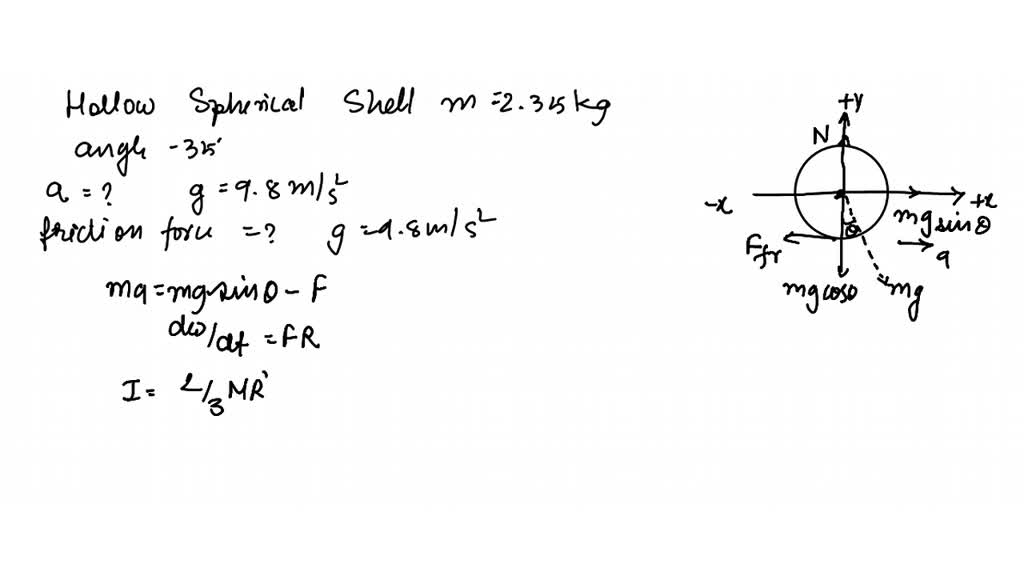 Hollow Spherical Shell m = 2.325 kg
angle - 325°
a = ? g = 9.8 m/s²
friction force = ? g = 9.8 m/s²
ma = mg sinθ - F
dω/dt = FR
I = 2/3 MR²
+y
N
-x
+x
mg sinθ
θ
Ffr
a
mg cosθ
mg